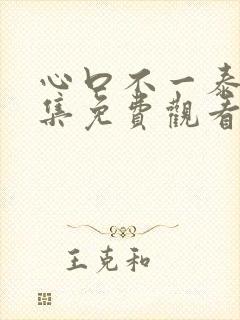 心口不一泰
集免費觀看
王克和